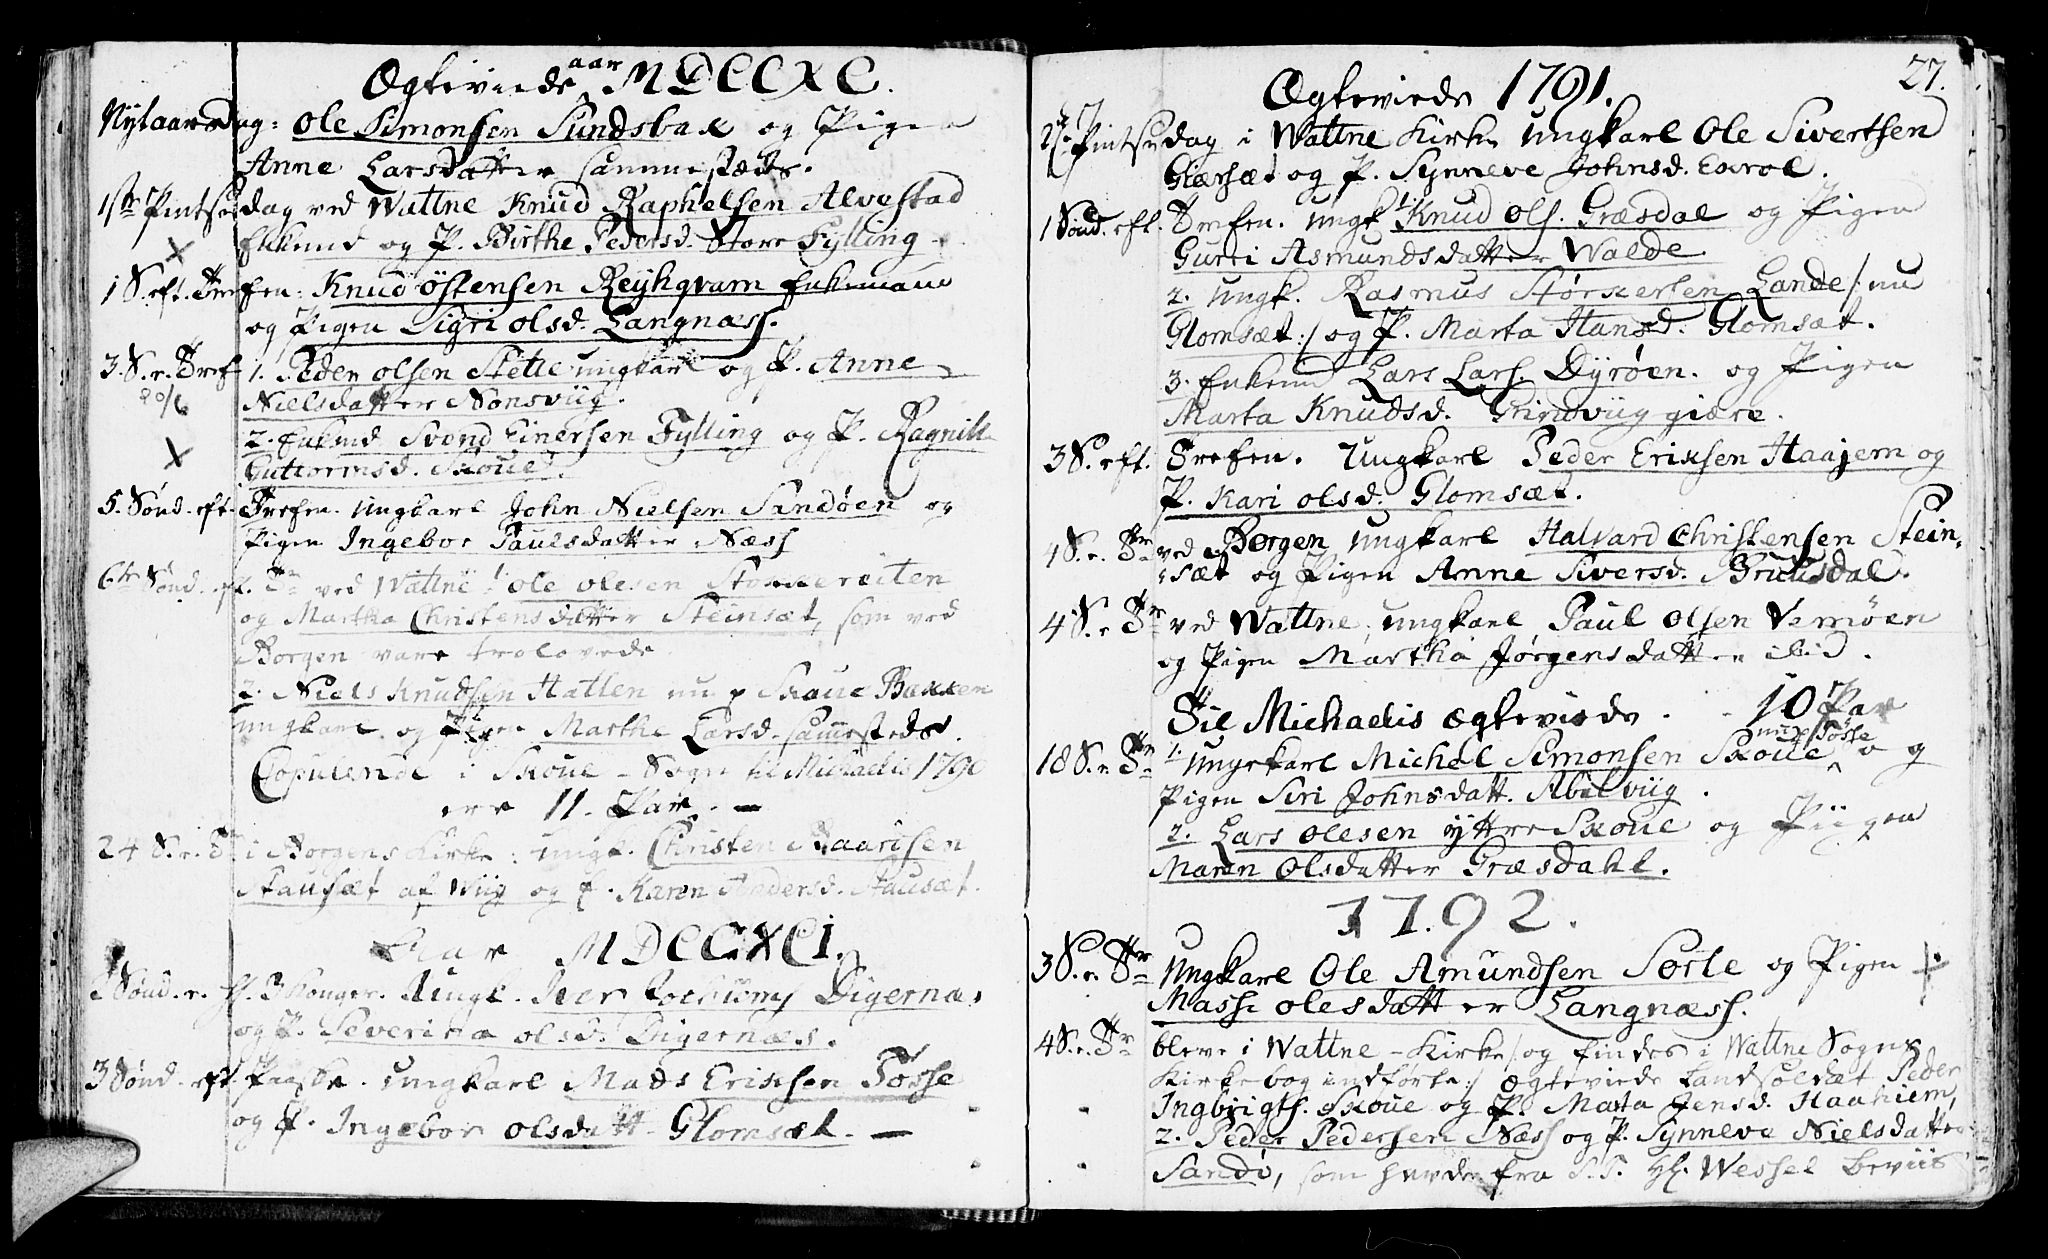 Ægteviede aar MDCCXC.
Nytaarsdag: Ole Simonsen Sundsbak og Pigen
Anne Larsdatter sammestæds.
1ste Pintsedag ved Wattne Knud Raphelsen Alvestad
Enkemd og P. Birthe Pedersd. Store Fylling
1 S. eft. Trefen: Knud Østensen Røykqvam Enkemann
og Pigen Sigri Olsd. Langnæss.
3. S. e. Tref 1. Peder Olsen Stette ungkarl og P. Anne
20/6 Nielsdatter Nonsviig.
2. Enkemd Svend Einersen Fylling og P. Ragnild
Guttormsd. Skoue.
5. Sønd. eft. Trefen. Ungkarl John Nielsen Sandøen og
Pigen Ingebor Paulsdatter Næss
6te Sønd. eft. Tr ved Wattne 1. Ole Olesen Stokkereiten
og Martha Christensdatter Steinsæt, som ved
Borgen vare trolovede
2. Niels Knudsen Hatlen nu p Skoue Bakken
ungkarl og Pigen Marthe Larsd. sammesteds.
Copulerede i Skoue-Sogn til Michaelis 1790
ere 11. Par. —
24 S. e. Tr i Borgens Kirke: ungk. Christen Baarsen
Stausæt af Wiig og P. Karen Andersd. Stausæt.
Aar MDCCXCI.
Sønd. e. H. 3 Konger. Ungk. Iver Jochums Digernæs
og P. Severina Olsd. Digernæs.
3 Sønd. eft. Paaske. Ungkarl Mads Erixsen Tøsse
og P. Ingebor Olsdatt. Glomsæt. —
27.
Ægteviede 1791.
2. Pintsedag i Wattne Kirke Ungkarl Ole Sivertsen
Giærsæt og P. Synneve Johnsd. Exrol.
1 Sønd. eft. Trefen. Ungk 1. Knud Ols. Græsdal og Pigen
Gurri Asmundsdatter Walde
2. Ungk. Rasmus Størkersen Lande /: nu
Glomsæt :/ og P. Marta Hansd. Glomsæt.
3. Enkemd Lars Lars. Dyrøen. og Pigen
Marta Knudsd. Grindviig giære.
3 S. eft. Trefen. Ungkarl Peder Erixsen Haajem og
P. Kari Olsd. Glomsæt.
4 S. e. Tr ved Borgen Ungkarl Halvard Christensen Stein-
sæt og Pigen Anne Siversd. Bruusdal.
4 S. e Tr ved Wattne, Ungkarl Paul Olsen Vemøen
og Pigen Martha Jørgensdatter ibid.
Til Michaelis Ægteviede - 10 Par
18 S. e. Tr 1. Ungkarl Michel Simonsen Skoue nu Tøsse og
Pigen Siri Johnsdatt. Abelviig.
2. Lars Olesen yttre Skoue og Piigen
Maren Olsdatter Græsdahl.
1792.
3 S. e. Tr Ungkarl Ole Amundsen Sørle og Pigen
Massi Olesdatter Langnæss.
4 S. e. Tr bleve i Wattne-Kirke /: og findes i Wattne Sogns
Kirkebog indførte :/ Ægteviede Landsoldat Peder
Ingbrigts. Skoue og P. Marta Jensd. Haahiem,
2. Peder Pedersen Næss og P. Synneve Nielsdatter
Sandø, som havde fra S.T. Hr. Wessel Beviis